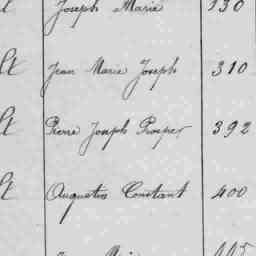 Joseph Marie 130
lt Jean Marie Joseph 310
lt Pierre Joseph Prosper 392
lt Augustin Constant 400